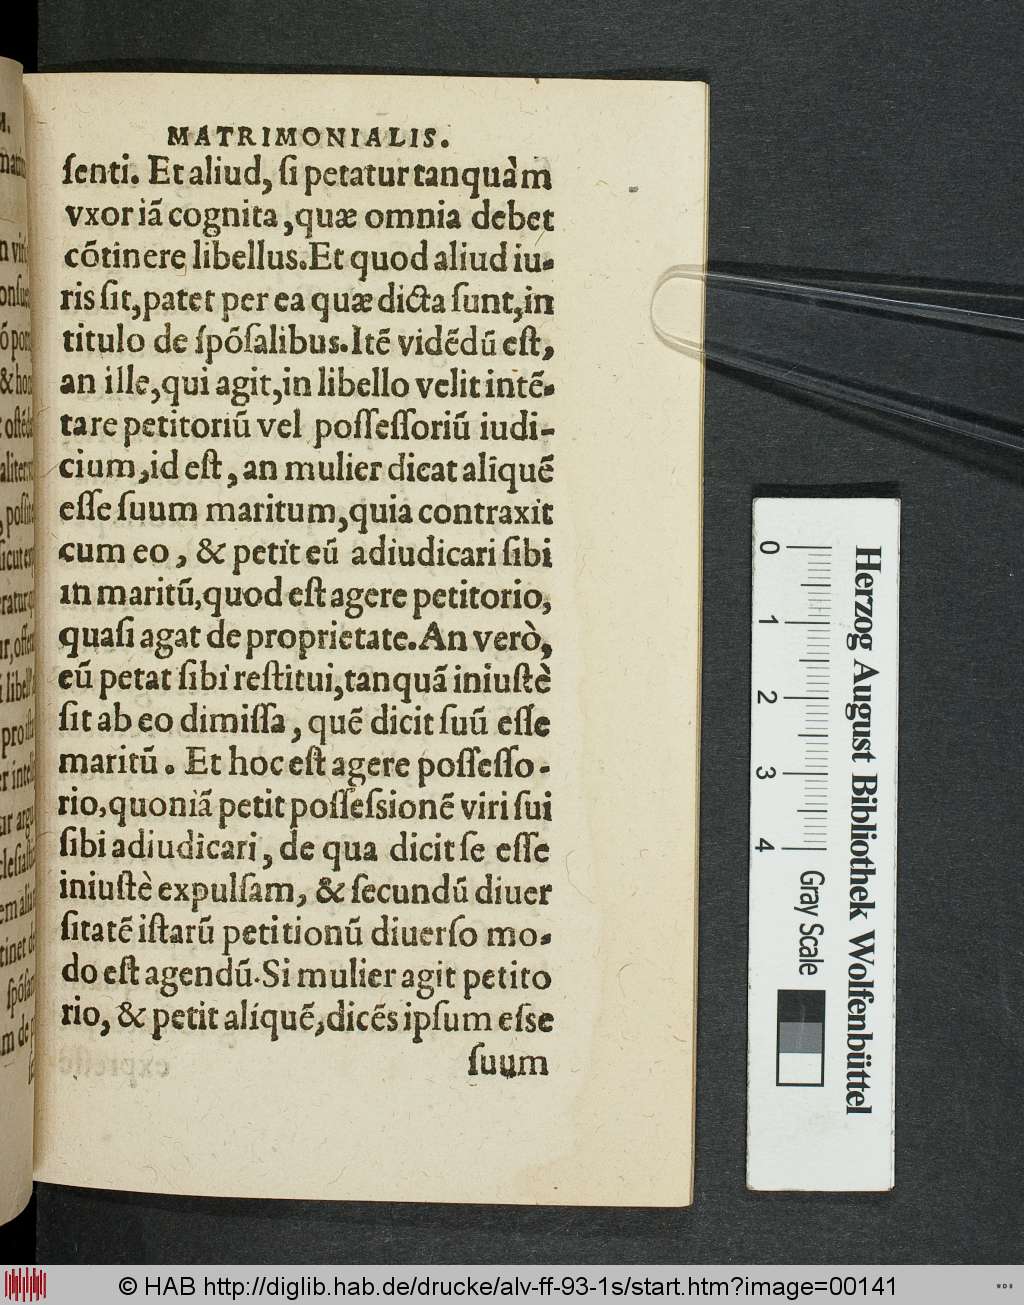 MATRIMONIALIS.
ſenti. Et aliud, ſi petatur tanquàm
vxor iã cognita, quæ omnia debet
cõtinere libellus. Et quod aliud iu-
ris ſit, patet per ea quæ dicta ſunt, in
titulo de ſpõſalibus. Itẽ vidẽdũ eſt,
an ille, qui agit, in libello velit intẽ-
tare petitoriũ vel poſſeſſoriũ iudi-
cium, id eſt, an mulier dicat aliquẽ
eſſe ſuum maritum, quia contraxit
cum eo, & petit eũ adiudicari ſibi
in maritũ, quod eſt agere petitorio,
quaſi agat de proprietate. An verò,
eũ petat ſibi reſtitui, tanquã iniuſtè
ſit ab eo dimiſſa, quẽ dicit ſuũ eſſe
maritũ. Et hoc eſt agere poſſeſſo-
rio, quoniã petit poſſeſsionẽ viri ſui
ſibi adiudicari, de qua dicit ſe eſſe
iniuſtè expulſam, & ſecundũ diuer
ſitatẽ iſtarũ petitionũ diuerſo mo-
do eſt agendũ. Si mulier agit petito
rio, & petit aliquẽ, dicẽs ipſum eſse
ſuum
0 1 2 3 4
Gray Scale
Herzog August Bibliothek Wolfenbüttel
© HAB http://diglib.hab.de/drucke/alv-ff-93-1s/start.htm?image=00141